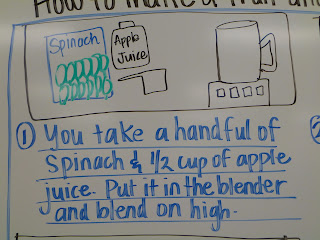 How to make a fruit and
Spinach
Apple
Juice
① You take a handful of
Spinach & 1/2 cup of apple
juice. Put it in the blender
and blend on high.